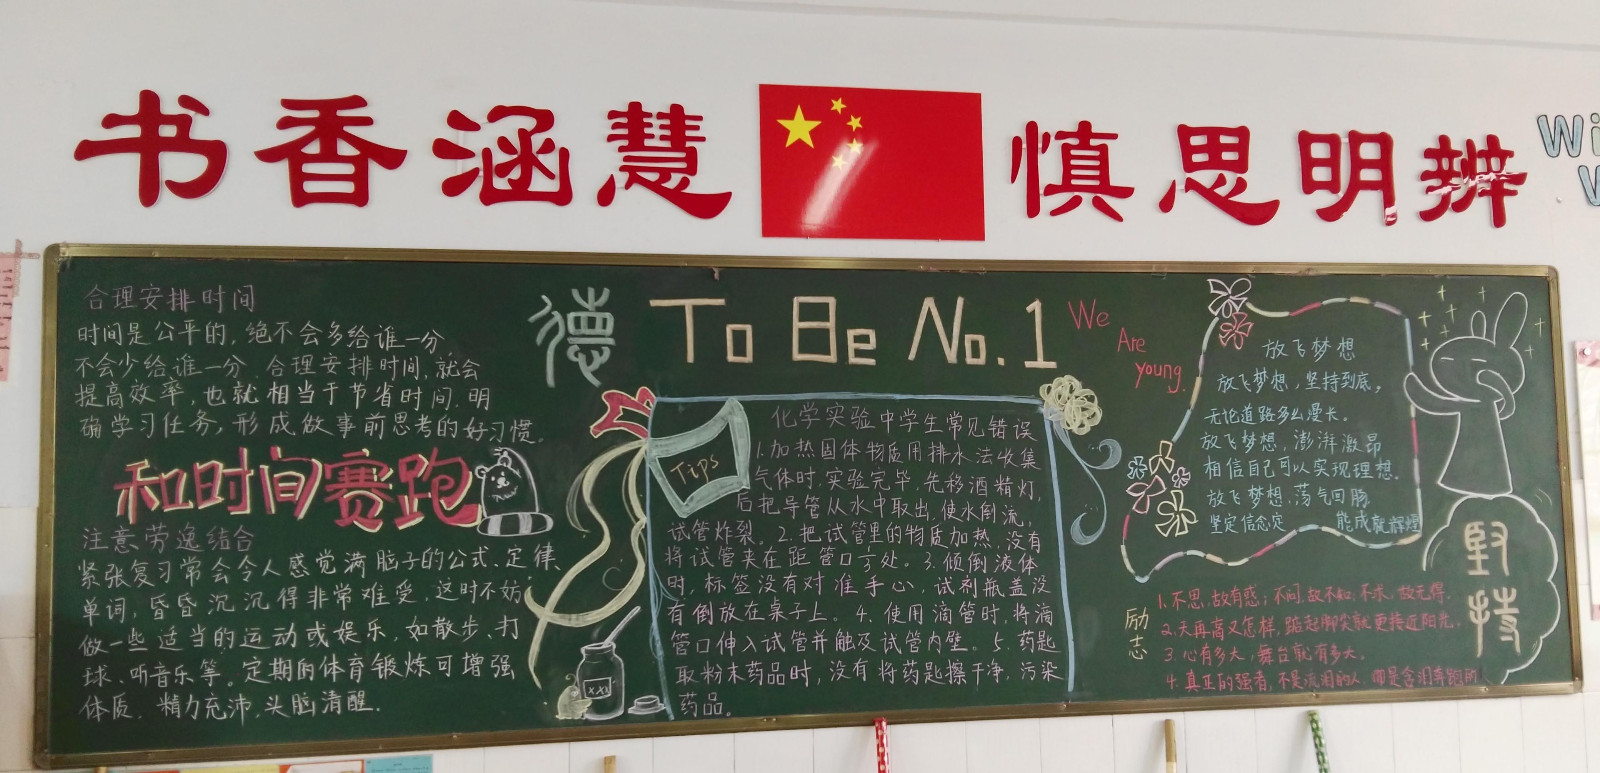 书香涵慧
慎思明辨
Wi
合理安排时间
时间是公平的,绝不会多给谁一分,
不会少给谁一分.合理安排时间,就会
提高效率,也就相当于节省时间.明
确学习任务,形成做事前思考的好习惯.
和时间赛跑
注意劳逸结合
紧张复习常会令人感觉满脑子的公式、定律、
单词,昏昏沉沉得非常难受,这时不妨
做一些适当的运动或娱乐,如散步、打
球、听音乐等。定期的体育锻炼可增强
体质,精力充沛,头脑清醒.
德
To Be No.1
We
Are
young.
Tips
化学实验中学生常见错误
1.加热固体物质用排水法收集
气体时,实验完毕,先移酒精灯,
后把导管从水中取出,使水倒流,
试管炸裂。2.把试管里的物质加热,没有
将试管夹在距管口⅓处。3.倾倒液体
时,标签没有对准手心,试剂瓶盖没
有倒放在桌子上。4.使用滴管时,将滴
管口伸入试管并触及试管内壁。5.药匙
取粉末药品时,没有将药匙擦干净,污染
药品。
XXI
放飞梦想
放飞梦想,坚持到底,
无论道路多么漫长。
放飞梦想,澎湃激昂
相信自己可以实现理想.
放飞梦想,荡气回肠
坚定信念定 能成就辉煌
坚持
励志
1.不思,故有惑;不问,故不知;不求,故无得.
2.天再高又怎样,踮起脚尖就更接近阳光.
3.心有多大,舞台就有多大.
4.真正的强者,不是流泪的人,而是含泪奔跑的